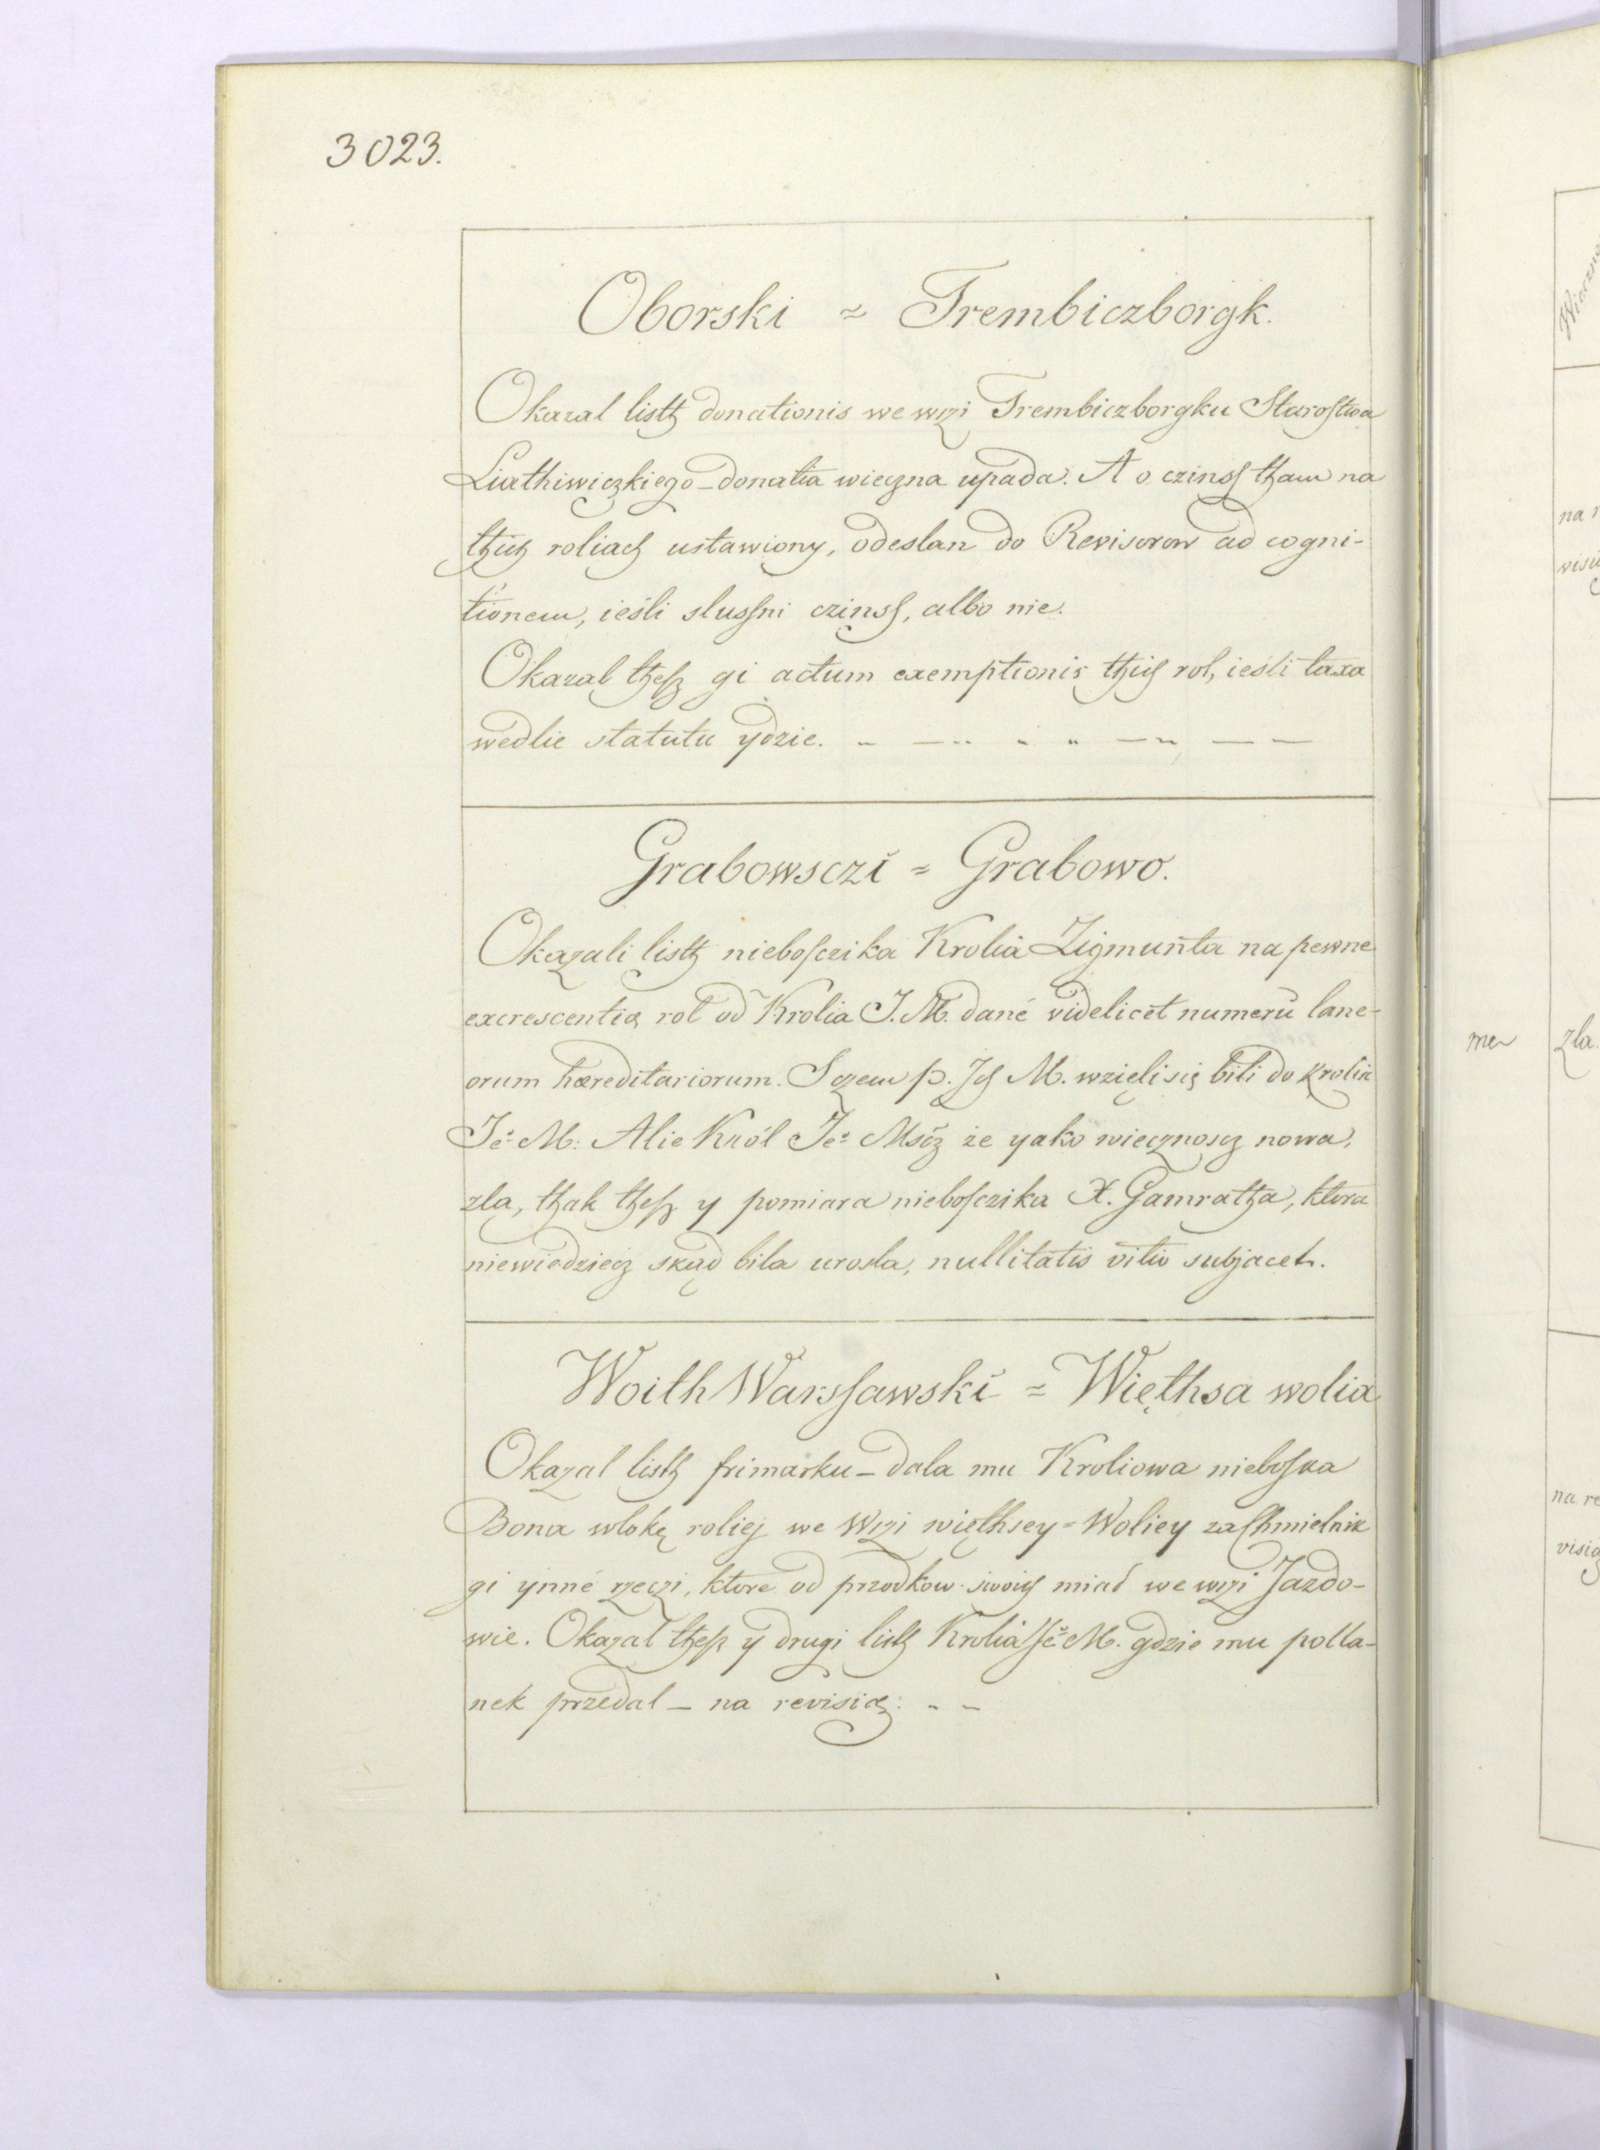 3023.
Oborski = Trembiczborgk.
Okazal listh donationis we wzi Trembiczborgku Starostwa
Liathiwiczkiego – donatia wieczna upada. A o czinss tham na
thich roliach ustawiony, odeslan do Revisorow ad cogni-
tionem, iesli slussni czinss, albo nie.
Okazal thesz gi actum exemptionis thich rol, iesli taxa
wedlie statutu ydzie.
Grabowsczi = Grabowo.
Okazali listh niebosczika Krolia Zigmunta na pewne
excrescentia rol od Krolia J. M. dané videlicet numerū lane-
orum hæreditariorum. Sczem p. Ich M. wzięli się bili do krolia
Je° M: Alie Król Je° Mść że yako wiecznoscz nowa,
zlą, thak thesz y pomiara niebosczika X. Gamratha, ktora
niewiedziecz skąd bila urosla, nullitatis vitio subjacet.
Woith Warssawski = Więthsa wolia
Okazal listh frimarku – dala mu Kroliowa nieboska
Bona wlokę roliej we Wzi więthsey = Woliey za Chmielnik
gi ynné rzeczi, ktore od przodkow swoich miał we wzi Jazdo-
wie. Okazal thesz y drugi listh Krolia Je° M. gdzie mu polla-
nek przedal – na revisią.
na r
visi
me
zla.
na re
visią